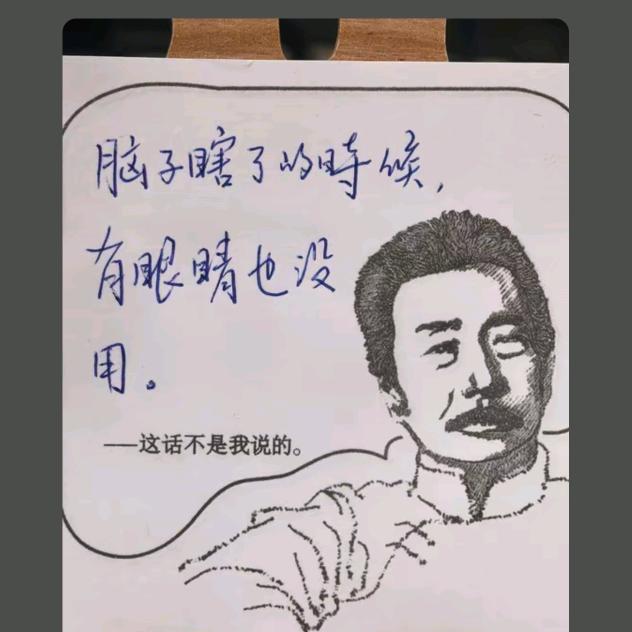 脑子瞎了的時候，
有眼睛也没
用。
——这话不是我说的。